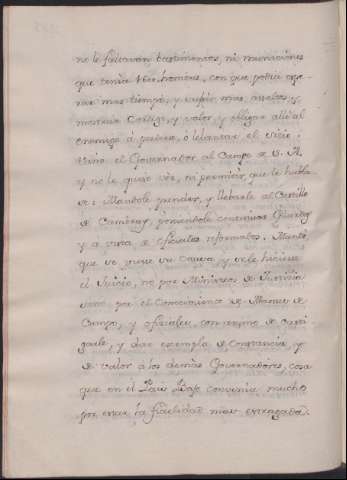 no le faltavan bastimentos, ni municiones
que tenia 1600 hombres, con que podia espe-
rar mas tiempo, y sufrir mas asaltos, y
mostrar Corage, y valor, y obligar alli al
enemigo á perderse, ó lebantar el sitio.
Vino el Governador al Campo de S. A.
y no le quiso vér, ni permitir, que le habla-
se: Mandole prender, y llebarle al Castillo
de Cambray, poniendole continuas Guardas
y á vista de oficiales reformados. Mandó,
que se viese su Causa, y se le hiciese
el Juicio, no por Ministros de Justicia
sino por el Conocimiento de Maeses de
Campo, y oficiales, con animo de casti-
garle, y dar exemplo de Constancia, y
de valor á los demas Governadores, cosa
que en el Pais Bajo convenia mucho
por estar la fidelidad muy estragada.